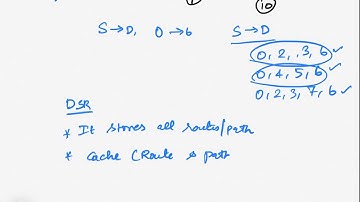 10
S→D, 0→6
S→D
0, 2, 3, 6 ✓
0, 4, 5, 6 ✓
0, 2, 3, 7, 6 ✓
DSR
* It stores all routes/path
* Cache (Route & path